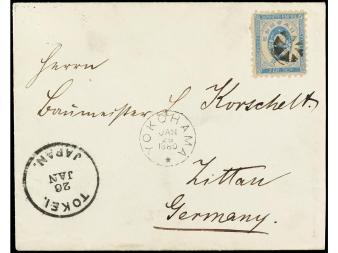 Herrn
Baumeister H Korschelt.
YOKOHAMA
JAN
26
1880
Zittau
Germany.
TOKEI,
JAPAN.
26
JAN